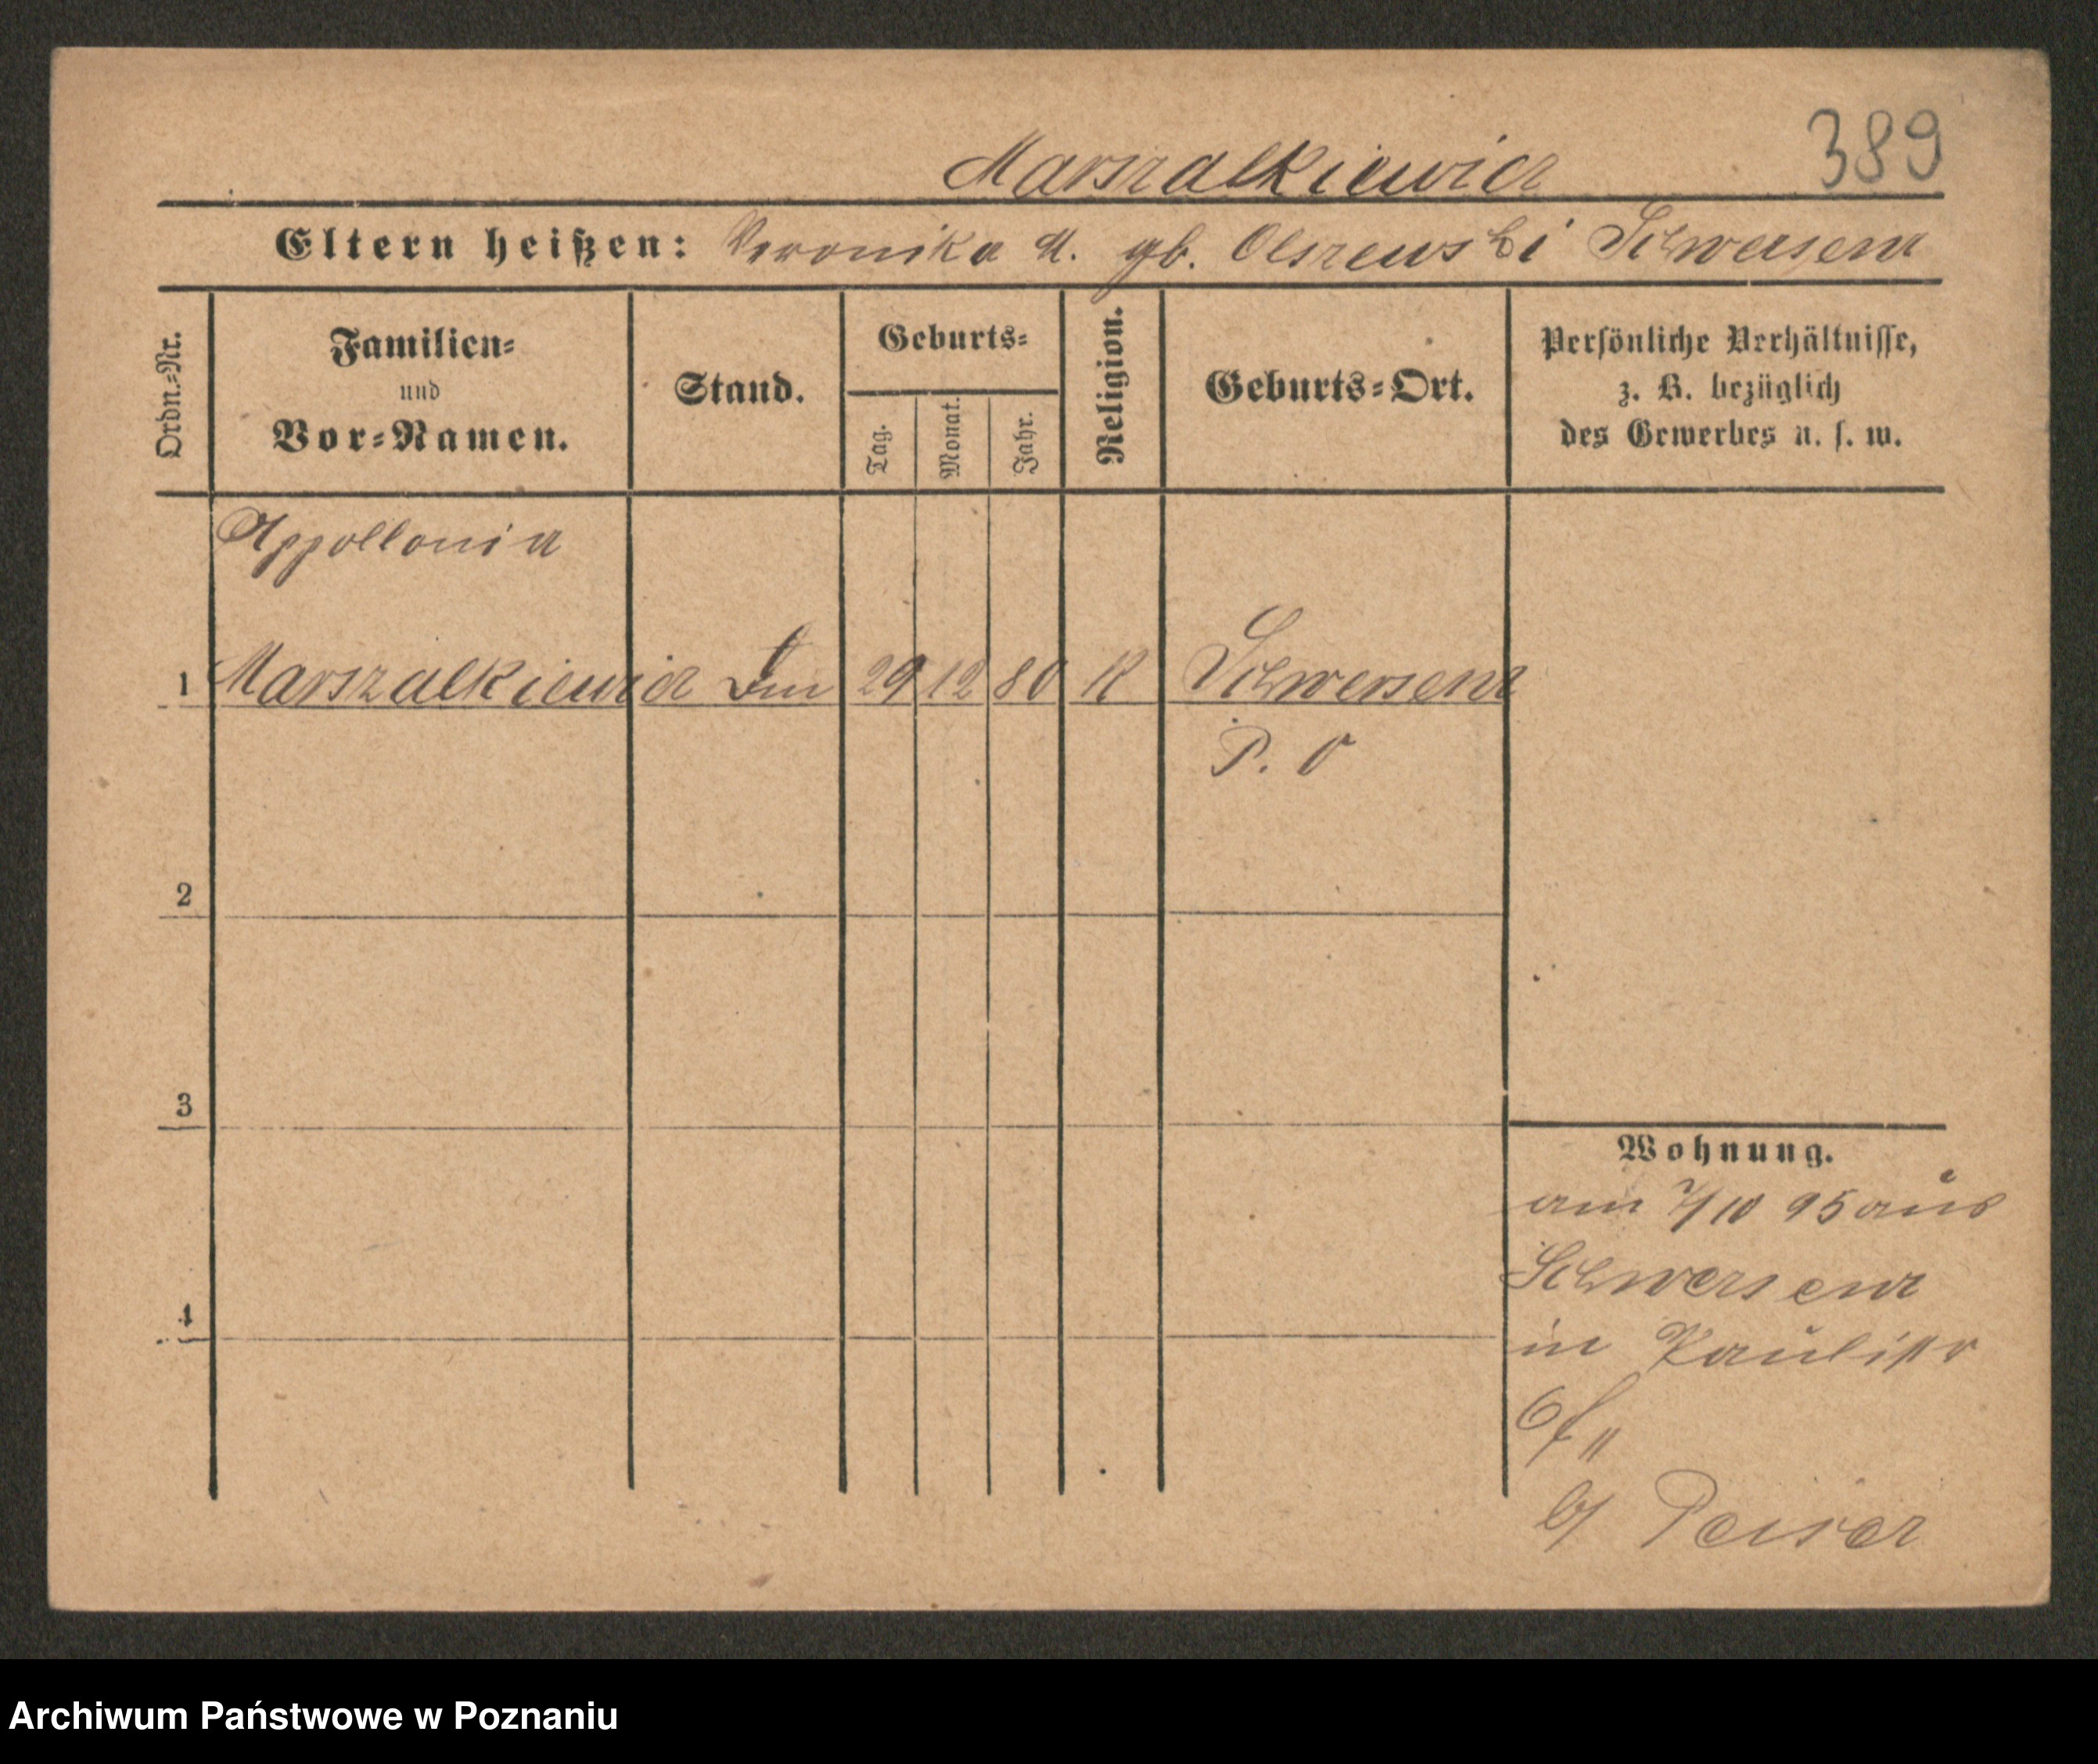 389
Marszalkiewicz
Eltern heißen: Veronika M. gb. Olszewski Schwersenz
Ordn.-Nr.
Familien-
und
Vor-Namen.
Stand.
Geburts-
Tag.
Monat.
Jahr.
Religion.
Geburts-Ort.
Persönliche Verhältnisse,
z. B. bezüglich
des Gewerbes u. s. w.
Appollonia
1 Marszalkiewicz 29 12 80 K Schwersenz
P. O
2
3
4
Wohnung.
am 7/10 95 aus
Schwersenz
in Paulistr
6
b/ Peiser
Archiwum Państwowe w Poznaniu